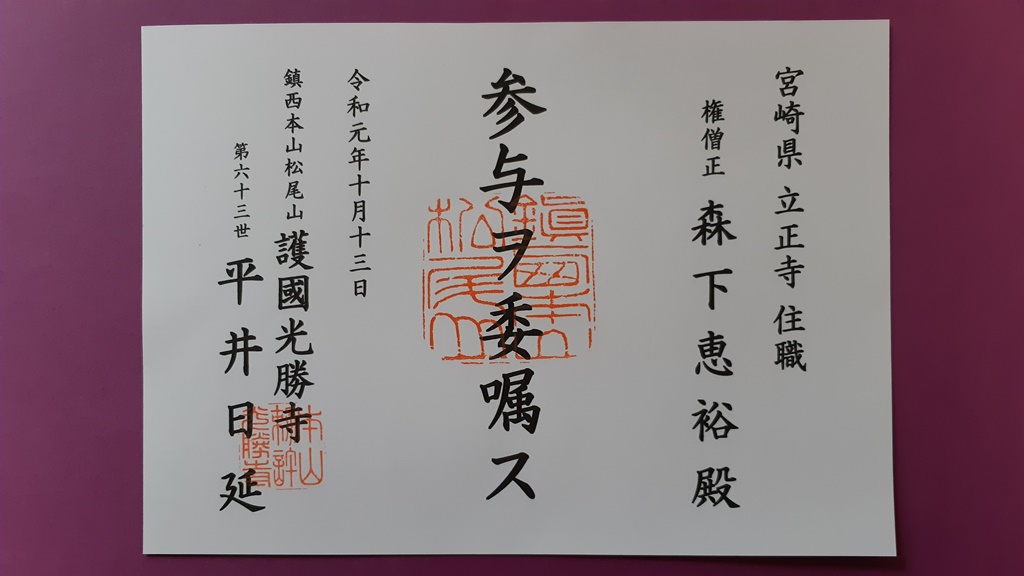 宮崎県 立正寺 住職
権僧正 森下恵裕殿
参与ヲ委嘱ス
令和元年十月十三日
鎮西本山松尾山 護國光勝寺
第六十三世 平井日延